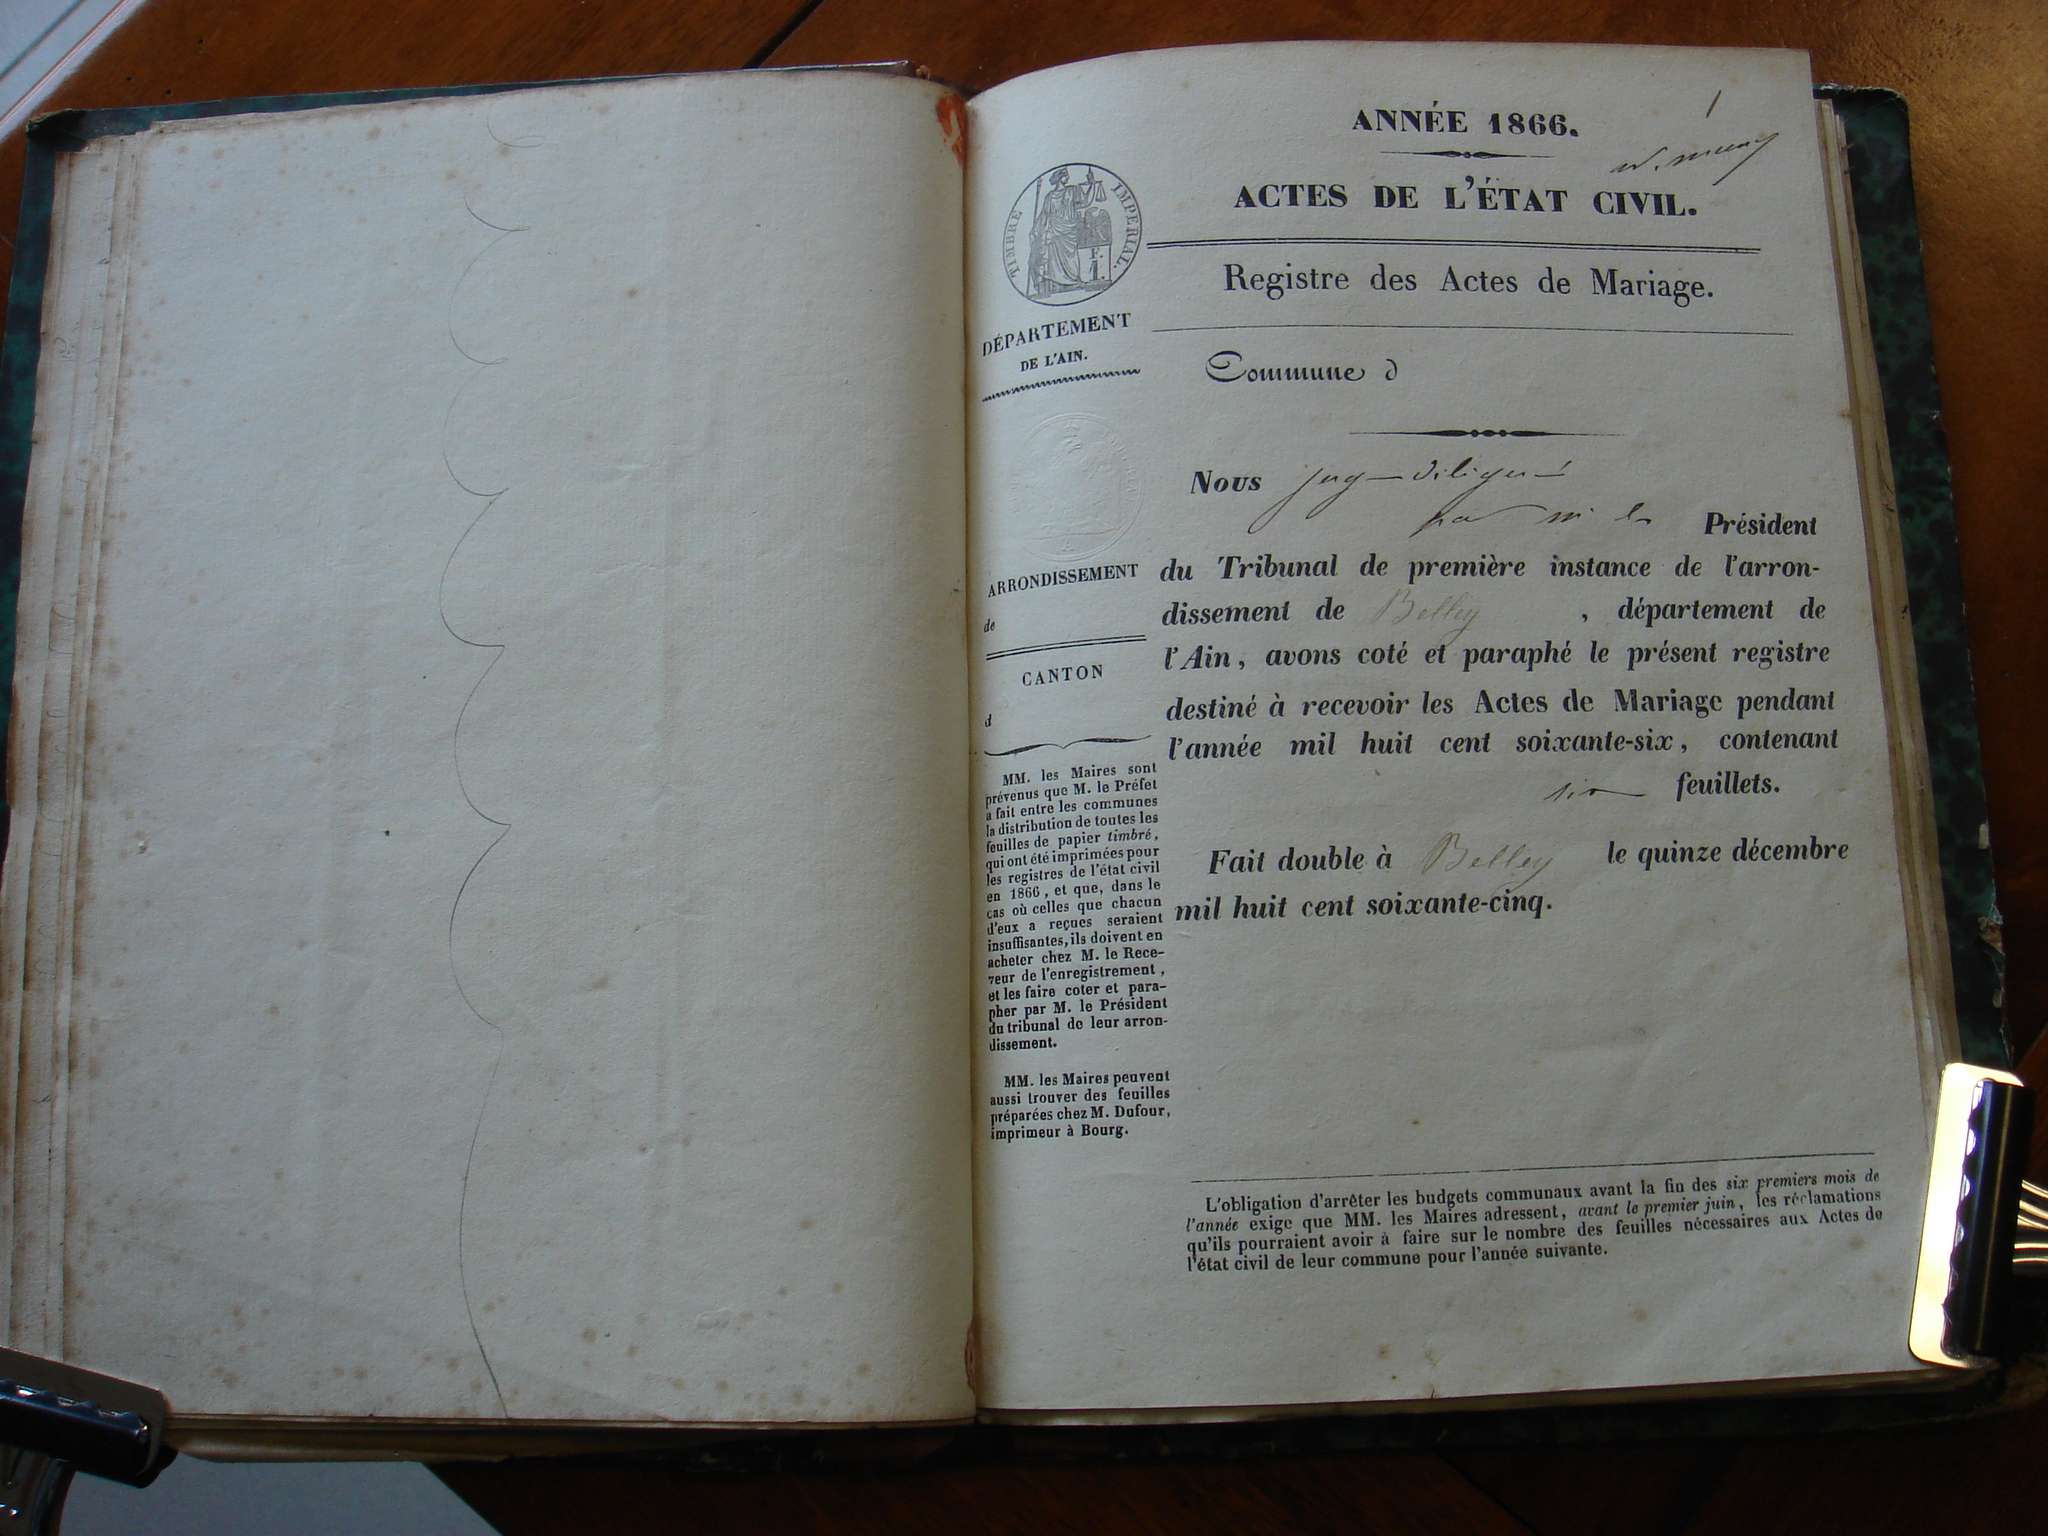 1
ANNÉE 1866.
ACTES DE L'ÉTAT CIVIL.
TIMBRE IMPERIAL.
F.
1.
Registre des Actes de Mariage.
DÉPARTEMENT
DE L'AIN.
Commune d
ARRONDISSEMENT
de
CANTON
d
MM. les Maires sont
prévenus que M. le Préfet
a fait entre les communes
la distribution de toutes les
feuilles de papier timbré,
qui ont été imprimées pour
les registres de l'état civil
en 1866, et que, dans le
cas où celles que chacun
d'eux a reçues seraient
insuffisantes, ils doivent en
acheter chez M. le Rece-
veur de l'enregistrement,
et les faire coter et para-
pher par M. le Président
du tribunal de leur arron-
dissement.
MM. les Maires peuvent
aussi trouver des feuilles
préparées chez M. Dufour,
imprimeur à Bourg.
Nous juge
par M. le Président
du Tribunal de première instance de l'arron-
dissement de Belley, département de
l'Ain, avons coté et paraphé le présent registre
destiné à recevoir les Actes de Mariage pendant
l'année mil huit cent soixante-six, contenant
six feuillets.
Fait double à Belley le quinze décembre
mil huit cent soixante-cinq.
L'obligation d'arrêter les budgets communaux avant la fin des six premiers mois de
l'année exige que MM. les Maires adressent, avant le premier juin, les réclamations
qu'ils pourraient avoir à faire sur le nombre des feuilles nécessaires aux Actes de
l'état civil de leur commune pour l'année suivante.